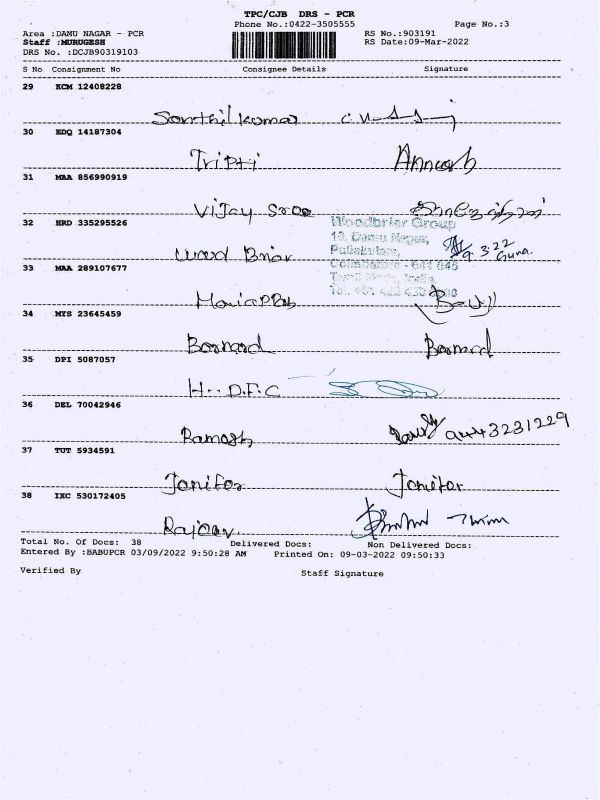 TPC/CJB DRS - PCR
Phone No.:0422-3505555 Page No.:3
Area :DAMU NAGAR - PCR RS No.:903191
Staff :MURUGESH RS Date:09-Mar-2022
DRS No. :DCJB90319103
S No Consignment No Consignee Details Signature
29 KCM 12408228
Senthilkumar
30 EDQ 14187304
Tripti
31 MAA 856990919
Vijay Sree
32 HRD 335295526
Woodbriar Group
19, Damu Nagar,
Puliakulam,
Coimbatore - 641 045
Tamil Nadu, India.
Wood Briar 9.3.22
Guna.
33 MAA 289107677
34 MYS 23645459
Bernard Bernard
35 DPI 5087057
H.D.F.C
36 DEL 70042946
Ramesh 9443231229
37 TUT 5934591
Jenifer Jenifer
38 IXC 530172405
Rajeev
Total No. Of Docs: 38 Delivered Docs: Non Delivered Docs:
Entered By :BABUPCR 03/09/2022 9:50:28 AM Printed On: 09-03-2022 09:50:33
Verified By Staff Signature